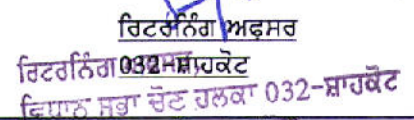 ਰਿਟਰਨਿੰਗ ਅਫਸਰ
ਰਿਟਰਨਿੰਗ 032-ਸ਼ਾਹਕੋਟ
ਵਿਧਾਨ ਸਭਾ ਚੋਣ ਹਲਕਾ 032-ਸ਼ਾਹਕੋਟ